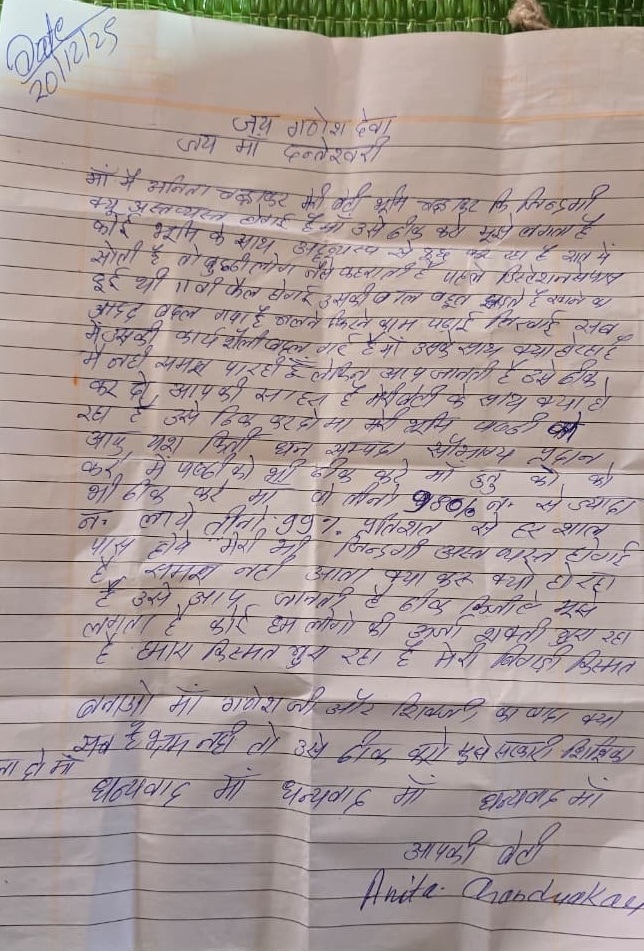 Date
20/12/25
जय गणेश देवा
जय माँ दन्तेश्वरी
माँ मै अनिता चन्द्राकर मेरी बेटी भूमि चन्द्राकर कि जिन्दगी
क्यू अस्तव्यस्त होगई है माँ उसे ठीक करो मुझे लगता है
कोई भूमि के साथ अदृश्यरूप से कर रहा है रात में
सोती है तो लोग जैसे है पहले
हुई थी 11वी फेल होगई उसकी बाल बहुत है खाने का
बदल गया है चलने फिरने काम पढाई लिखाई सब
में उसकी कार्य शैली बदल गई है माँ उसके साथ क्या होरहा है
मै नही समझ पारही हूँ लेकिन आप जानती है उसे ठीक
कर दो, आपकी है मेरी बेटी के साथ क्या हो
रहा है उसे ठिक करदो माँ मेरी भूमि पण्डी को
आयु यश धन सम्पदा सौभाग्य प्रदान
करे, मे पण्डी को भी ठीक करे माँ को को
भी ठीक करे माँ वो तीनो 98% नः से ज्यादा
नः लाये तीनो 99% प्रतिशत से हर साल
पास होवे मेरी भी जिन्दगी अस्त व्यस्त होगई
है समझ नही आता क्या करू क्यो हो रहा
है उसे आप जानती है ठीक किजीये मुझे
लगता है कोई हम लोगो की ऊर्जा शक्ती चुरा रहा
है हमारा किस्मत चुरा रहा है मेरी बिगडी किस्मत
बनाओ माँ गणेश जी और शिवजी, का क्या
सच है भ्रम नही तो उसे ठीक करो मुझे शिक्षिका
ना दो माँ
धन्यवाद माँ धन्यवाद माँ धन्यवाद माँ
आपकी बेटी
Anita Chandrakar